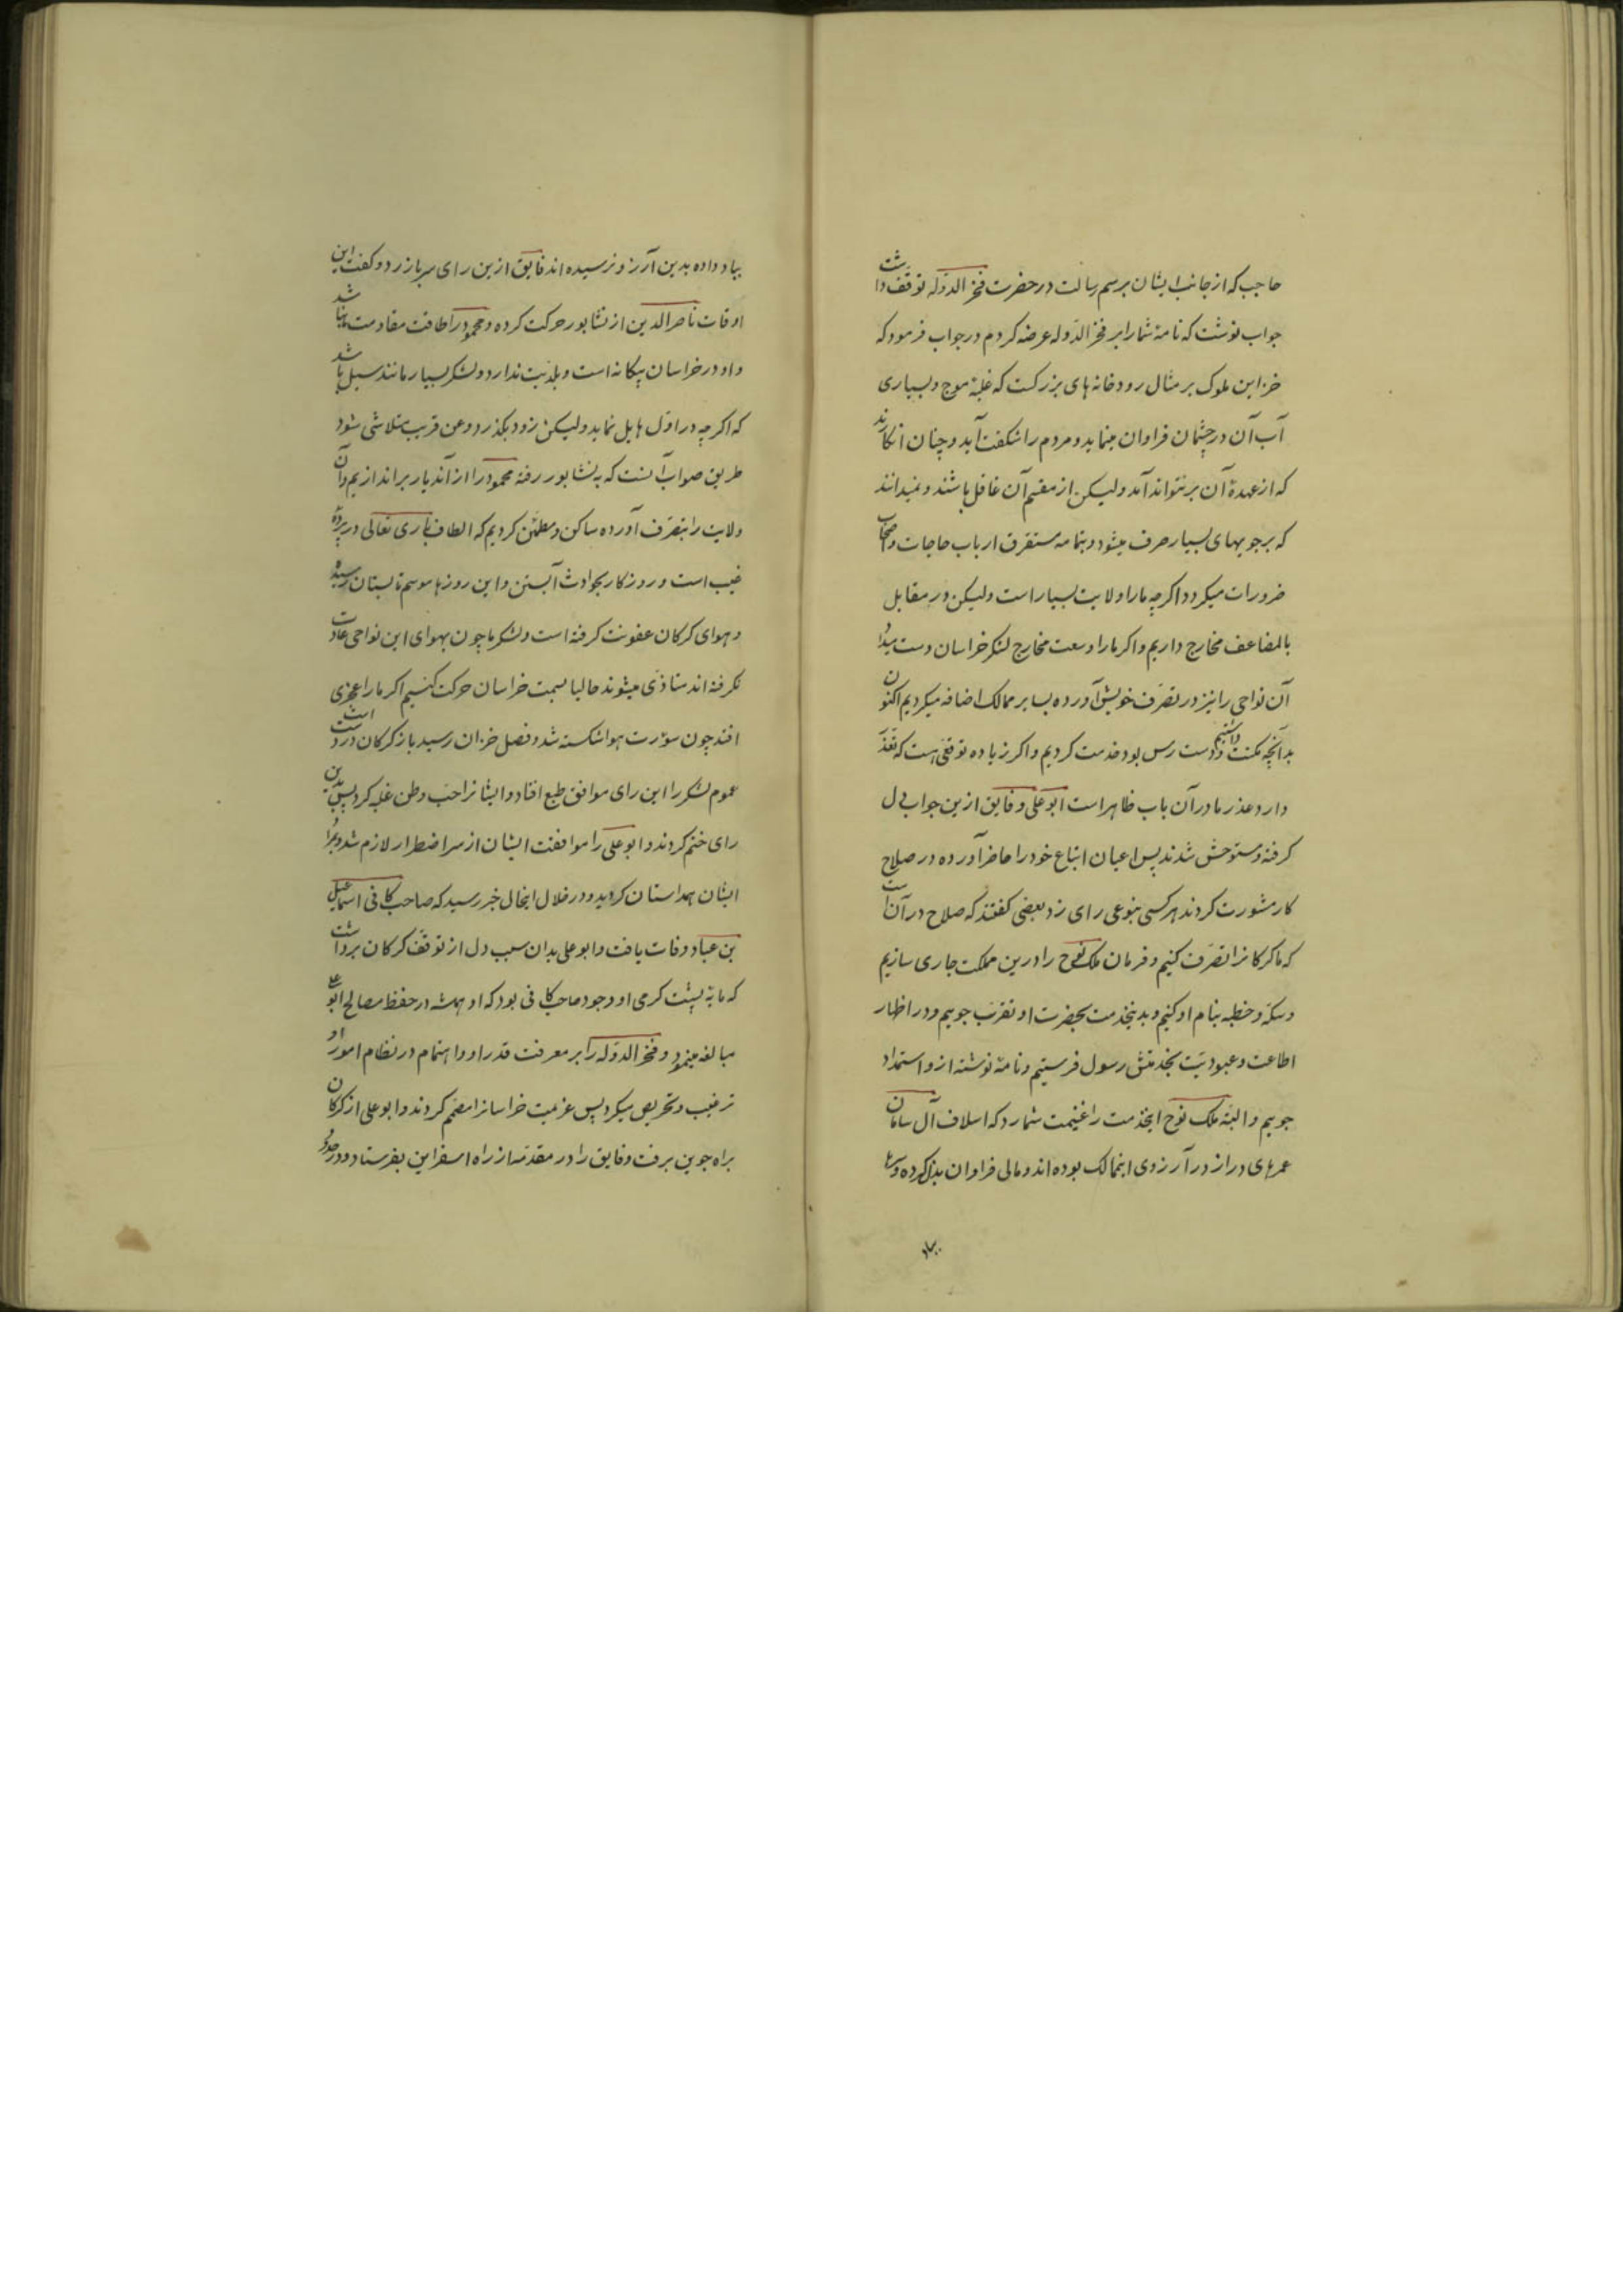 حاجب که از جانب ایشان برسم رسالت در حضرت فخر الدوله توقف داشت
جواب نوشت که نامهٔ شما را بر فخر الدوله عرضه کردم در جواب فرمود که
خزاین ملوک بر مثال رودخانه های بزرکست که غلبهٔ موج و بسیاری
آب آن در چشمان فراوان مینماید و مردم را شکفت آید و چنان انکارند
که از عهدهٔ آن بر نتواند آمد ولیکن از مقسم آن غافل باشند و نمیدانند
که بر جویهای بسیار صرف میشود و بتمامه مستغرق ارباب حاجات و اصحاب
ضرورات میکردد اکرچه ما را ولایت بسیار است ولیکن در مقابل
بالمضاعف مخارج داریم و اکر ما را وسعت مخارج لشکر خراسان دست میداد
آن نواحی را نیز در تصرف خویش آورده بسایر ممالک اضافه میکردیم اکنون
بدآنچه مکنت داشتیم و دست رس بود خدمت کردیم و اکر زیاده توقعی هست که تعذر
دارد عذر ما در آن باب ظاهر است ابو علی و فایق ازین جواب دل
کرفته و مستوحش شدند پس اعیان اتباع خود را حاضر آورده در صلاح
کار مشورت کردند هر کسی بنوعی رای زد بعضی کفتند که صلاح در آنست
که ما کرکانرا تصرف کنیم و فرمان ملک نوح را درین مملکت جاری سازیم
و سکه و خطبه بنام او کنیم و بدینخدمت بحضرت او تقرب جوییم و در اظهار
اطاعت و عبودیت بخدمتش رسول فرستیم و نامهٔ نوشته ازو استمداد
جوییم و البته ملک نوح اینخدمت را غنیمت شمارد که اسلاف آل سامان
عمرهای دراز در آرزوی اینممالک بوده اند و مالی فراوان بذل کرده و سرها
بباد
بباد داده بدین آرزو نرسیده اند فایق ازین رای سر باز زد و کفت این
اوقات ناصر الدین از نشابور حرکت کرده و محمود را طاقت مقاومت ما نباشد
و او در خراسان بیکانه است و بلدیت ندارد و لشکر بسیار مانند سیل باشد
که اکرچه در اول هایل نماید ولیکن زود بکذرد و عن قریب متلاشی شود
طریق صواب آنست که به نشابور رفته محمود را از آندیار براندازیم و آن
ولایت را بتصرف آورده ساکن و مطمئن کردیم که الطاف باری تعالی در پردهٔ
غیب است و روزکار بحوادث آبستن و این روزها موسم تابستان رسید
و هوای کرکان عفونت کرفته است و لشکر ما چون بهوای این نواحی عادت
نکرفته اند متاذی میشوند حالیا بسمت خراسان حرکت کنیم اکر ما را عجزی
افتد چون سورت هوا شکسته شد و فصل خزان رسید باز کرکان در دست است
عموم لشکر را این رای موافق طبع افتاد و ایشانرا حب وطن غلبه کرد پس بدین
رای ختم کردند و ابو علی را موافقت ایشان از سر اضطرار لازم شد و با
ایشان همداستان کردید و در خلال اینحال خبر رسید که صاحب کافی اسماعیل
بن عباد وفات یافت و ابو علی بدان سبب دل از توقف کرکان برداشت
که مایهٔ پشت کرمی او وجود صاحب کافی بود که او همیشه در حفظ مصالح ابو علی
مبالغه مینمود و فخر الدوله را بر معرفت قدر او و اهتمام در نظام امور او
ترغیب و تحریص میکرد پس عزیمت خراسانرا مصمم کردند و ابو علی از کرکان
براه جوین برفت و فایق را در مقدمه از راه اسفراین بفرستاد و در حدود